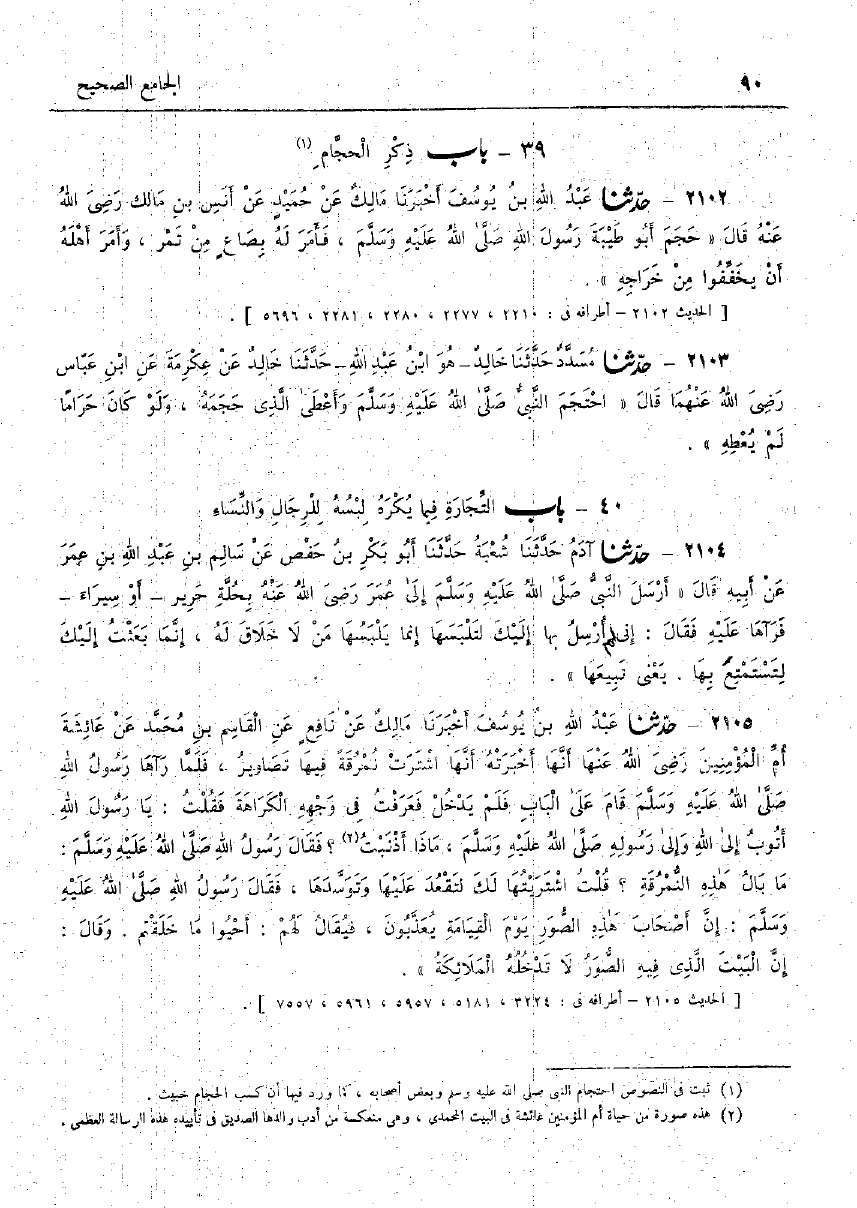 ٩٠ الجامع الصحيح
٣٩ – باب ذِكْرِ الْحجَّامِ (١)
٢١٠٢ – حدّثنا عَبْدُ اللهِ بنُ يُوسُفَ أَخْبَرَنَا مَالِكٌ عَنْ حُمَيْدٍ عَنْ أَنَسِ بنِ مَالك رَضِىَ اللهُ
عَنْهُ قَالَ « حَجَمَ أَبُو طَيْبَةَ رَسُولَ اللهِ صَلَّى اللهُ عَلَيْهِ وَسَلَّمَ ، فَأَمَرَ لَهُ بِصَاعٍ مِنْ تَمْر ، وَأَمَرَ أَهْلَهُ
أَنْ يخَفِّفُوا مِنْ خَرَاجِهِ » .
[ الحديث ٢١٠٢ – أطرافه فى : ٢٢١٠ ، ٢٢٧٧ ، ٢٢٨٠ ، ٢٢٨١ ، ٥٦٩٦ ] .
٢١٠٣ – حدّثنا مُسَدَّدٌ حَدَّثَنَا خَالِدٌ – هوَ ابْنُ عَبْدِ اللهِ – حَدَّثَنَا خَالِدٌ عَنْ عِكْرِمَةَ عَنِ ابْنِ عَبَّاس
رَضِىَ اللهُ عَنْهُمَا قَالَ « احْتَجَمَ النَّبِىُّ صَلَّى اللهُ عَلَيْهِ وَسَلَّمَ وَأَعْطَى الَّذِى حَجَمَهُ ، وَلَوْ كَانَ حَرَامًا
لَمْ يُعْطِهِ » .
٤٠ – باب التِّجَارَةِ فِيمَا يُكْرَهُ لِبْسُهُ لِلرِّجَالِ وَالنِّسَاءِ
٢١٠٤ – حدّثنا آدَمُ حَدَّثَنَا شُعْبَةُ حَدَّثَنَا أَبُو بَكْرِ بنُ حَفْص عَنْ سَالِمِ بنِ عَبْدِ اللهِ بنِ عمَرَ
عَنْ أَبِيهِ قَالَ « أَرْسَلَ النَّبِىُّ صَلَّى اللهُ عَلَيْهِ وَسَلَّمَ إِلَى عُمَرَ رَضِىَ اللهُ عَنْهُ بِحُلَّةِ حَرِير – أَوْ سِيرَاءَ –
فَرَآهَا عَلَيْهِ فَقَالَ : إِنى لم أُرْسِلْ بها إِلَيْكَ لتَلْبَسَهَا إِنما يَلْبَسُهَا مَنْ لَا خَلَاقَ لَهُ ، إِنَّمَا بَعَثْتُ إِلَيْكَ
لِتَسْتَمْتِعَ بِهَا . يَعْنِى تَبِيعَهَا » .
٢١٠٥ – حدّثنا عَبْدُ اللهِ بنُ يُوسُفَ أَخْبَرَنَا مَالِكٌ عَنْ نَافِعٍ عَنِ الْقَاسِمِ بنِ مُحَمَّد عَنْ عَائِشَةَ
أُمِّ الْمُؤْمِنِينَ رَضِىَ اللهُ عَنْهَا أَنَّهَا أَخْبَرَتْهُ أَنَّهَا اشْتَرَتْ نُمْرُقَةً فِيهَا تَصَاوِيرُ ، فَلَمَّا رَآهَا رَسُولُ اللهِ
صَلَّى اللهُ عَلَيْهِ وَسَلَّمَ قَامَ عَلَى الْبَابِ فَلَمْ يَدْخُلْ فَعَرَفْتُ فِى وَجْهِهِ الْكَرَاهَةَ فَقُلْتُ : يَا رَسُولَ اللهِ
أَتُوبُ إِلَى اللهِ وَإِلَى رَسُولِهِ صَلَّى اللهُ عَلَيْهِ وَسَلَّمَ ، مَاذَا أَذْنَبْتُ (٢) ؟ فَقَالَ رَسُولُ اللهِ صَلَّى اللهُ عَلَيْهِ وَسَلَّمَ :
مَا بَالُ هٰذِهِ النُّمْرُقَةِ ؟ قُلْتُ اشْتَرَيْتُهَا لَكَ لتَقْعُدَ عَلَيْهَا وَتَوَسَّدَهَا ، فَقَالَ رَسُولُ اللهِ صَلَّى اللهُ عَلَيْهِ
وَسَلَّمَ : إِنَّ أَصْحَابَ هٰذِهِ الصُّوَرِ يَوْمَ الْقِيَامَةِ يُعَذَّبُونَ ، فَيُقَالُ لَهُمْ : أَحْيُوا مَا خَلَقْتم . وَقَالَ :
إِنَّ الْبَيْتَ الَّذِى فِيهِ الصُّوَرُ لَا تَدْخُلُهُ الْمَلَائِكَةُ » .
[ الحديث ٢١٠٥ – أطرافه فى : ٣٢٢٤ ، ٥١٨١ ، ٥٩٥٧ ، ٥٩٦١ ، ٧٥٥٧ ] .
(١) ثبت فى النصوص احتجام النبى صلى الله عليه وسلم وبعض أصحابه ، كما ورد فيها أن كسب الحجام خبيث .
(٢) هذه صورة من حياة أم المؤمنين عائشة فى البيت المحمدى ، وهى منعكسة من أدب والدها الصديق فى تأييده هذه الرسالة العظمى .